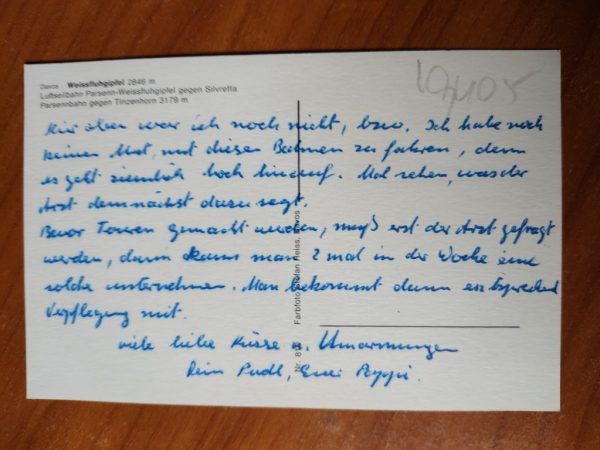 Davos Weissfluhgipfel 2846 m
Luftseilbahn Parsenn-Weissfluhgipfel gegen Silvretta
Parsennbahn gegen Tinzenhorn 3179 m
Hier oben war ich noch nicht, bzw. Ich habe noch
keinen Mut, mit diesen Bahnen zu fahren, denn
es geht ziemlich hoch hinauf. Mal sehen, was der
Arzt demnächst dazu sagt.
Bevor Touren gemacht werden, muß erst der Arzt gefragt
werden, dann kann man 2 mal in der Woche eine
solche unternehmen. Man bekommt dann entsprechend
Verpflegung mit.
Viele liebe Küsse u. Umarmungen
Dein Pudl, Euer Pappi.
Farbfoto Stefan Reiss, Davos
Nr. 8